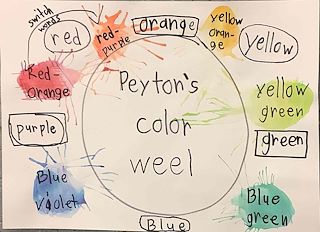 switch
words
red
red-
purple
orange
yellow
oran-
ge
yellow
Red-
orange
Peyton's
color
weel
yellow
green
purple
green
Blue
violet
Blue
green
Blue